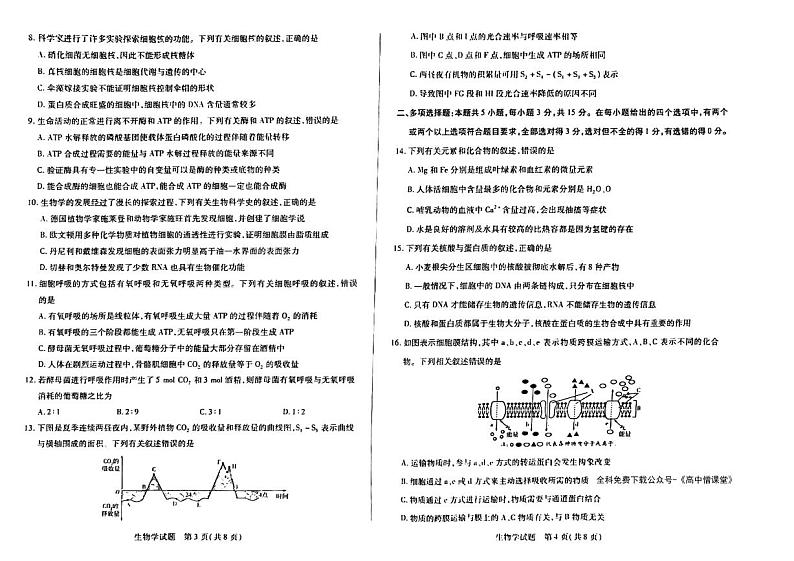 8. 科学家进行了许多实验探索细胞核的功能。下列有关细胞核的叙述,正确的是
A. 硝化细菌无细胞核,因此不能形成核糖体
B. 真核细胞的细胞核是细胞代谢与遗传的中心
C. 伞藻嫁接实验不能证明细胞核控制伞帽的形状
D. 蛋白质合成旺盛的细胞中,细胞核中的 DNA 含量通常较多
9. 生命活动的正常进行离不开酶和 ATP 的作用。下列有关酶和 ATP 的叙述,错误的是
A. ATP 水解释放的磷酸基团使载体蛋白磷酸化的过程伴随着能量转移
B. ATP 合成过程需要的能量与 ATP 水解过程释放的能量来源不同
C. 验证酶具有专一性实验中的自变量可以是酶的种类或底物的种类
D. 能合成酶的细胞也能合成 ATP,能合成 ATP 的细胞一定也能合成酶
10. 生物学的发展经过了漫长的探索过程,下列有关生物科学史的叙述,正确的是
A. 德国植物学家施莱登和动物学家施旺首先发现细胞,并创建了细胞学说
B. 欧文顿用多种化学物质对植物细胞的通透性进行实验,证明细胞膜由脂质组成
C. 丹尼利和戴维森发现细胞的表面张力明显高于油一水界面的表面张力
D. 切赫和奥尔特曼发现了少数 RNA 也具有生物催化功能
11. 细胞呼吸的方式包括有氧呼吸和无氧呼吸两种类型。下列有关细胞呼吸的叙述,错误
的是
A. 有氧呼吸的场所是线粒体,有氧呼吸生成大量 ATP 的过程伴随着 O₂ 的消耗
B. 有氧呼吸的三个阶段都能生成 ATP,无氧呼吸只在第一阶段生成 ATP
C. 酵母菌无氧呼吸过程中,葡萄糖分子中的能量大部分存留在酒精中
D. 人体在剧烈运动过程中,骨骼肌细胞中 CO₂ 的释放量等于 O₂ 的吸收量
12. 若酵母菌进行呼吸作用时产生了 5 mol CO₂ 和 3 mol 酒精,则酵母菌有氧呼吸与无氧呼吸
消耗的葡萄糖之比为
A. 2∶1 B. 2∶9 C. 3∶1 D. 1∶2
13. 下图是夏季连续两昼夜内,某野外植物 CO₂ 的吸收量和释放量的曲线图,S₁~S₅ 表示曲线
与横轴围成的面积。下列有关叙述错误的是
CO₂的
吸收量
O
CO₂的
释放量
时间
生物学试题 第 3 页(共 8 页)
A. 图中 B 点和 I 点的光合速率与呼吸速率相等
B. 图中 C 点、D 点和 F 点,细胞中生成 ATP 的场所相同
C. 两昼夜有机物的积累量可用 S₂+S₄-(S₁+S₃+S₅)表示
D. 导致图中 FG 段和 HI 段光合速率降低的原因不同
二、多项选择题:本题共 5 小题,每小题 3 分,共 15 分。在每小题给出的四个选项中,有两个
或两个以上选项符合题目要求,全部选对得 3 分,选对但不全的得 1 分,有选错的得 0 分。
14. 下列有关元素和化合物的叙述,错误的是
A. Mg 和 Fe 分别是组成叶绿素和血红素的微量元素
B. 人体活细胞中含量最多的化合物和元素分别是 H₂O、O
C. 哺乳动物的血液中 Ca²⁺含量过高,会出现抽搐等症状
D. 水是良好的溶剂及水具有较高的比热容都是因为氢键的存在
15. 下列有关核酸与蛋白质的叙述,正确的是
A. 小麦根尖分生区细胞中的核酸被彻底水解后,有 8 种产物
B. 一般情况下,细胞中的 DNA 由两条链构成,只分布在细胞核中
C. 只有 DNA 才能储存生物的遗传信息,RNA 不能储存生物的遗传信息
D. 核酸和蛋白质都属于生物大分子,核酸在蛋白质的生物合成中具有重要的作用
16. 如图表示细胞膜结构,其中 a、b、c、d、e 表示物质跨膜运输方式,A、B、C 表示不同的化合
物。下列相关叙述错误的是
能量
能量
A. 运输物质时,参与 a、d、e 方式的转运蛋白会发生构象改变
B. 细胞通过 a、e 或 d 方式来主动选择吸收所需的物质 全科免费下载公众号-《高中僧课堂》
C. 物质通过 c 方式进行运输时,物质需要与通道蛋白结合
D. 物质的跨膜运输与膜上的 A、C 物质有关,与 B 物质无关
生物学试题 第 4 页(共 8 页)